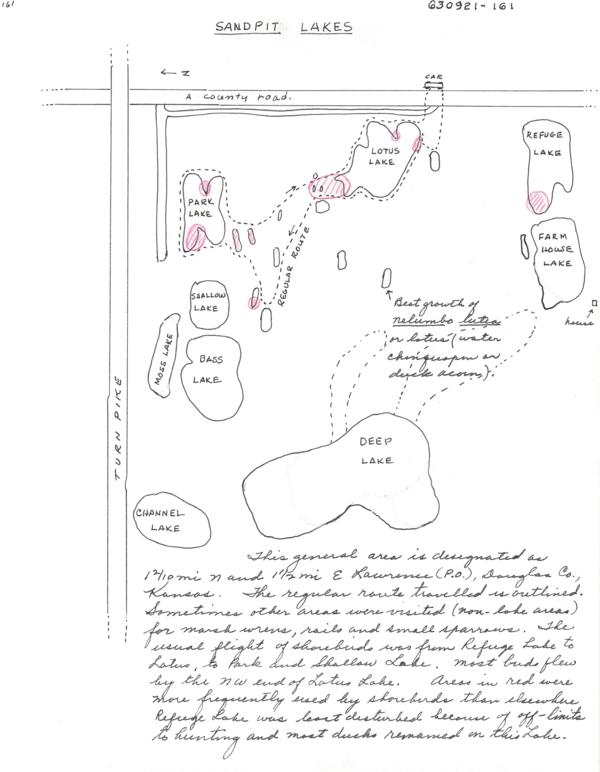 161
630921-161
SANDPIT LAKES
← N
CAR
A County road.
LOTUS
LAKE
REFUGE
LAKE
PARK
LAKE
REGULAR ROUTE
FARM
HOUSE
LAKE
house
SHALLOW
LAKE
MOSS LAKE
BASS
LAKE
Best growth of
nelumbo lutea
or lotus (water
chinquapin or
duck acorns).
TURN PIKE
DEEP
LAKE
CHANNEL
LAKE
This general area is designated as
1 2/10 mi N and 1 1/2 mi E Lawrence (P.O.), Douglas Co.,
Kansas. The regular route travelled is outlined.
Sometimes other areas were visited (non-lake areas)
for marsh wrens, rails and small sparrows. The
usual flight of shorebirds was from Refuge Lake to
Lotus, to Park and Shallow Lake. Most bird flew
by the NW end of Lotus Lake. Areas in red were
more frequently used by shorebirds than elsewhere
Refuge Lake was least disturbed because of off-limits
to hunting and most ducks remained on this Lake.